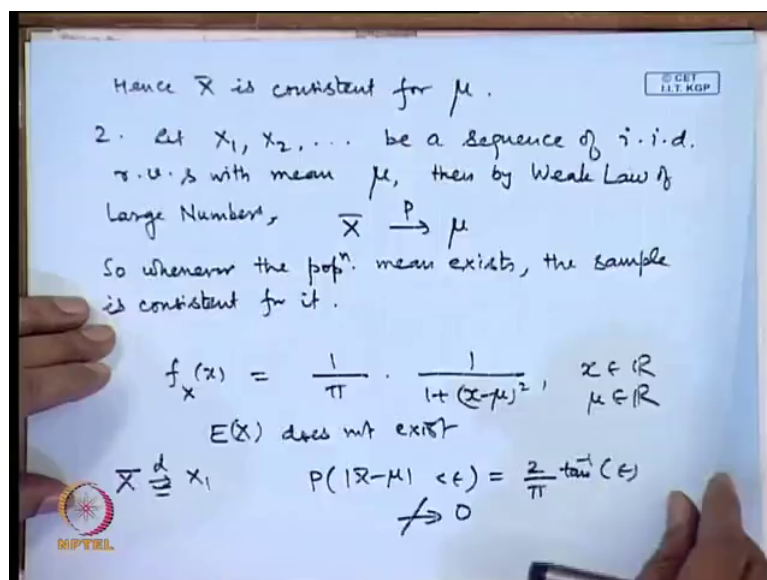 Hence X̄ is consistent for μ.
© CET
I.I.T. KGP
2. Let X₁, X₂, ... be a sequence of i.i.d.
r.v.s with mean μ, then by Weak Law of
Large Numbers, X̄ →ᴾ μ
So whenever the popⁿ. mean exists, the sample
is consistent for it.
f_X(x) = 1/π · 1/(1+(x-μ)²), x ∈ ℝ
μ ∈ ℝ
E(X) does not exist
X̄ =ᵈ X₁ P(|X̄-μ| < ε) = 2/π tan⁻¹(ε)
↛ 0
NPTEL